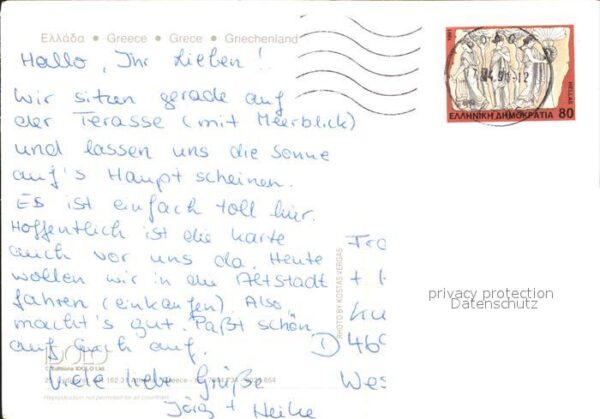 Ελλάδα • Greece • Grece • Griechenland
Hallo, Ihr Lieben!
Wir sitzen gerade auf
der Terasse (mit Meerblick)
und lassen uns die Sonne
auf's Haupt scheinen.
Es ist einfach toll hier.
Hoffentlich ist die Karte
auch vor uns da. Heute
wollen wir in die Altstadt
fahren (einkaufen). Also
macht's gut. Paßt schön
auf Euch auf.
Viele liebe Grüße
Jörg + Heike
IDOLO
© Editions IDOLO Ltd.
Reproduction not permited for all countries
PHOTO BY KOSTAS VERGAS
1991
HELLAS
ΕΛΛΗΝΙΚΗ ΔΗΜΟΚΡΑΤΙΑ 80
privacy protection
Datenschutz
D 460
Wes